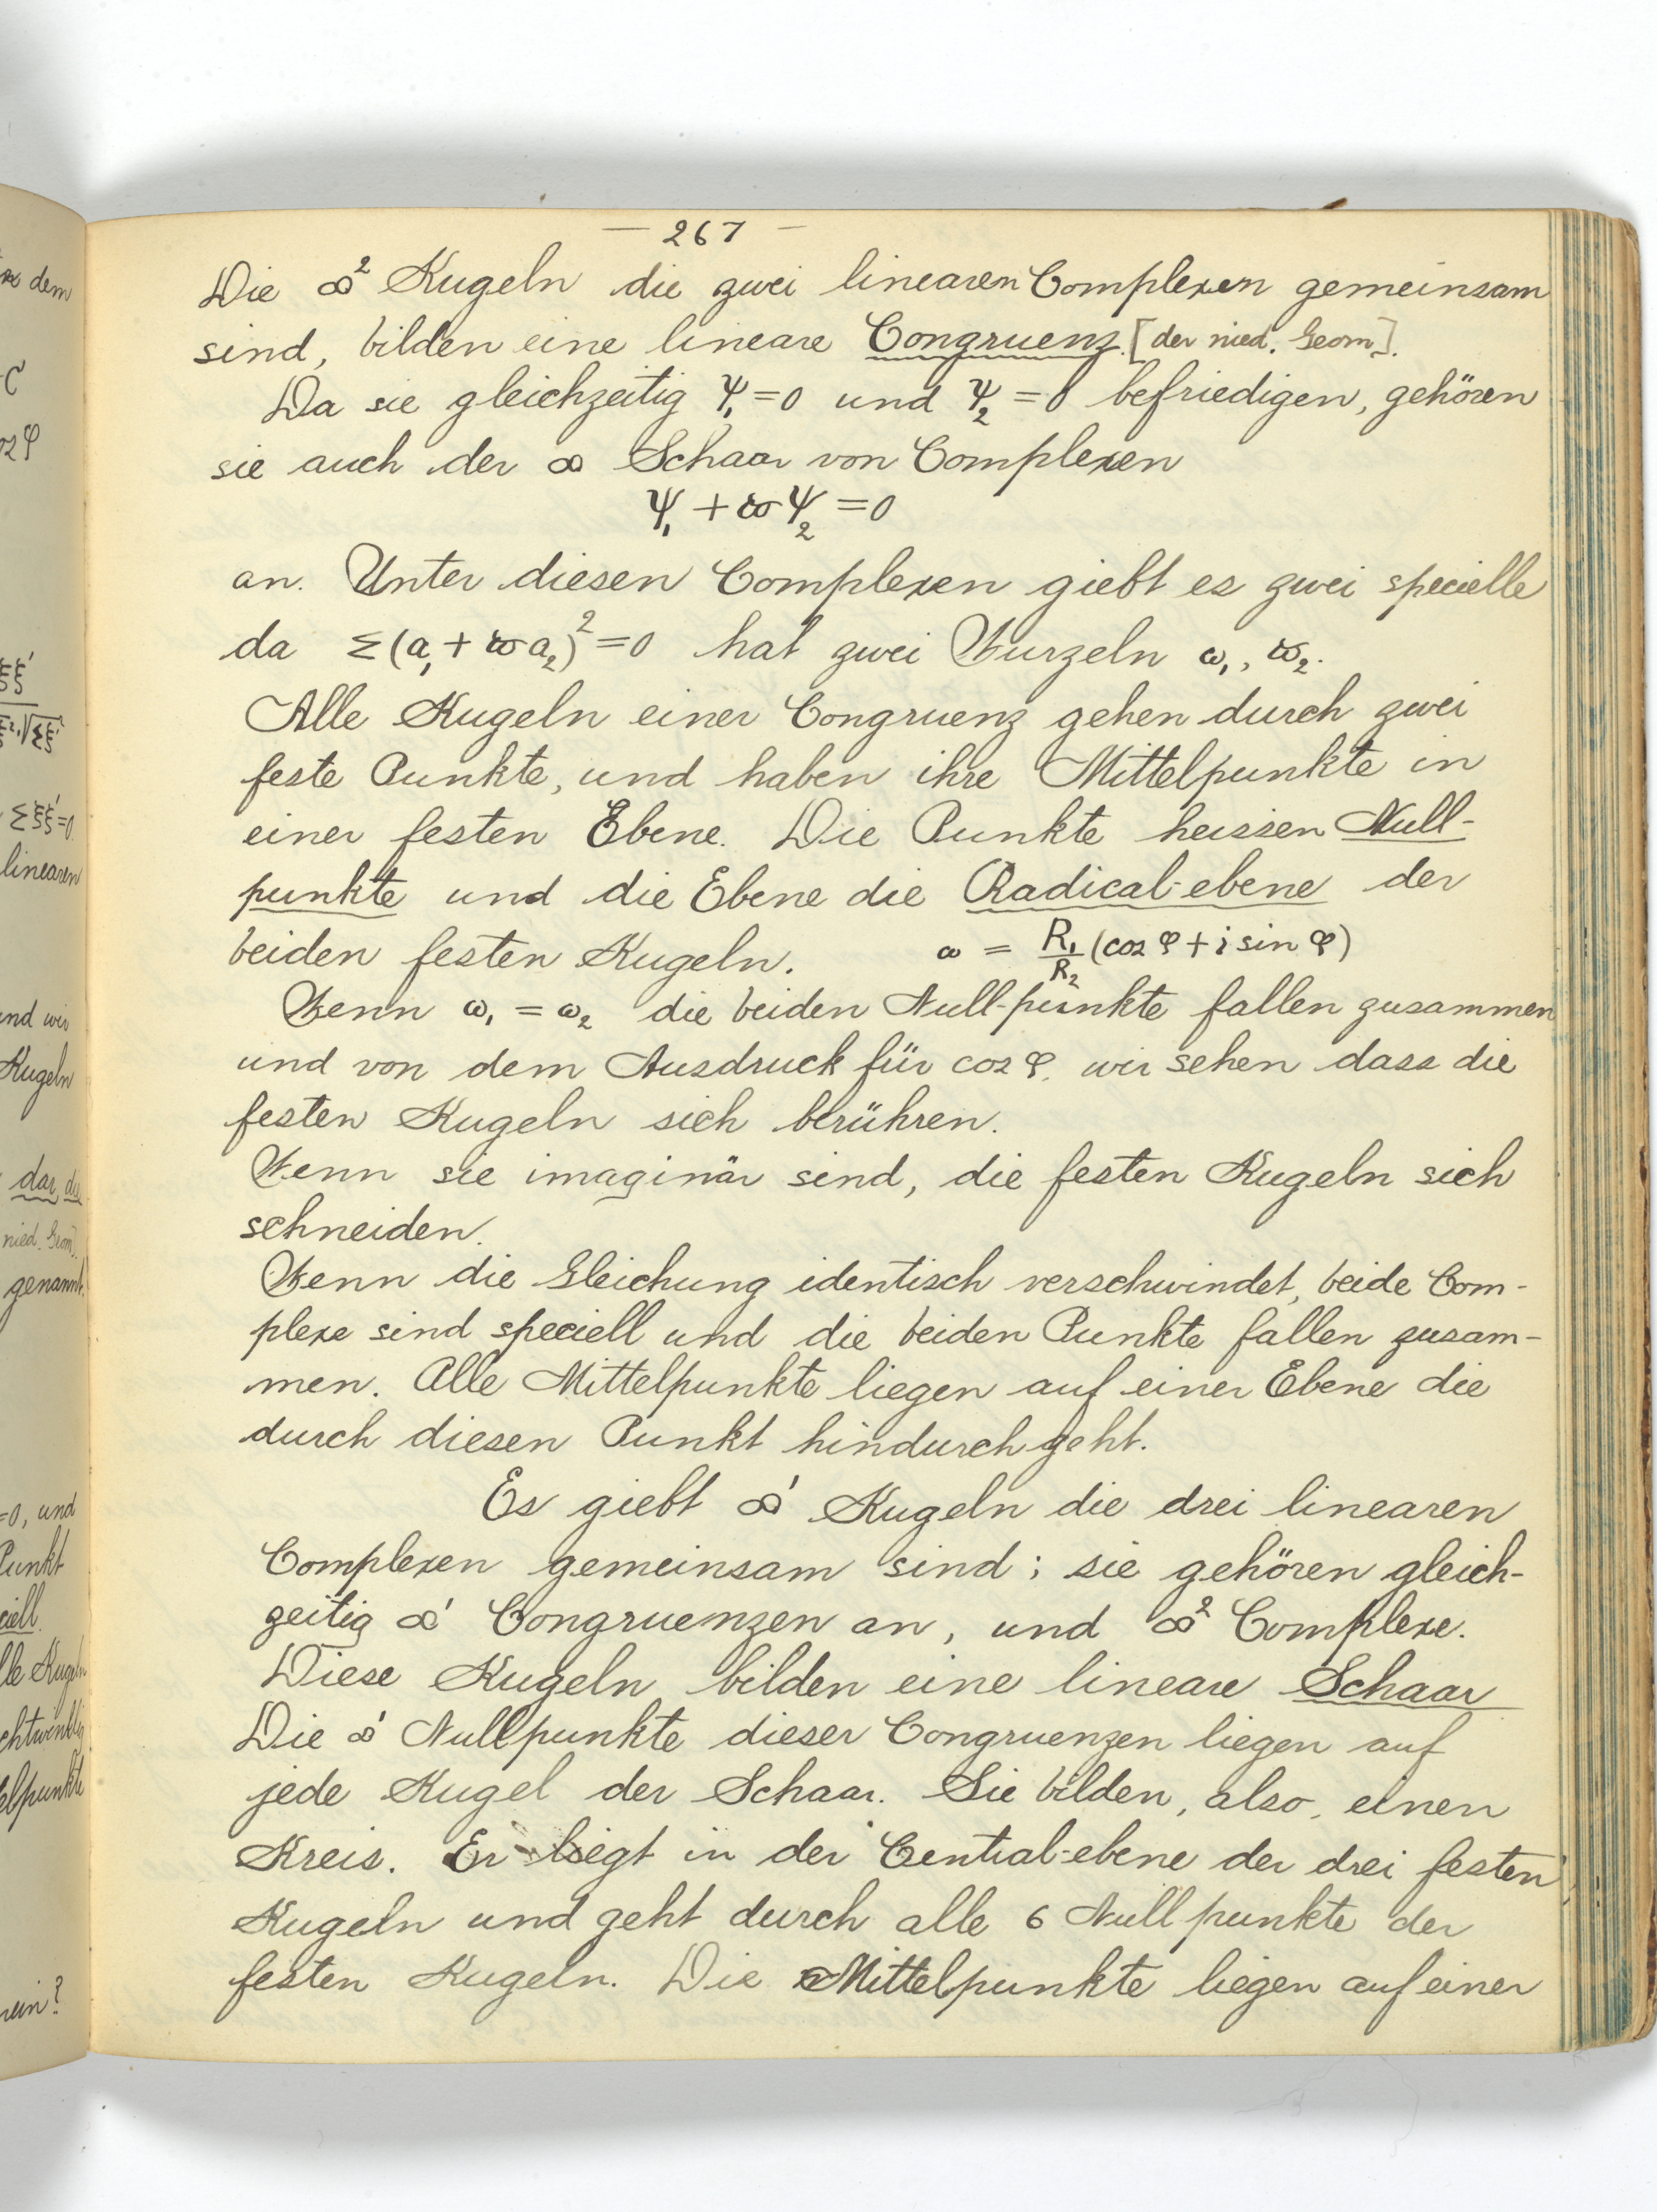 — 267 —
Die ∞² Kugeln die zwei linearen Complexen gemeinsam
sind, bilden eine lineare Congruenz. [der nied. Geom].
Da sie gleichzeitig Ψ₁=0 und Ψ₂=0 befriedigen, gehören
sie auch der ∞ Schaar von Complexen
Ψ₁ + ϖΨ₂ = 0
an. Unter diesen Complexen giebt es zwei specielle
da Σ(a₁+ϖa₂)²=0 hat zwei Wurzeln ω₁, ϖ₂.
Alle Kugeln einer Congruenz gehen durch zwei
feste Punkte, und haben ihre Mittelpunkte in
einer festen Ebene. Die Punkte heissen Null-
punkte und die Ebene die Radical-ebene der
beiden festen Kugeln. ω = R₁/R₂ (cos φ + i sin φ)
Wenn ω₁ = ω₂ die beiden Null-punkte fallen zusammen
und von dem Ausdruck für cos φ. wir sehen dass die
festen Kugeln sich berühren.
Wenn sie imaginär sind, die festen Kugeln sich
schneiden.
Wenn die Gleichung identisch verschwindet, beide Com-
plexe sind speciell und die beiden Punkte fallen zusam-
men. Alle Mittelpunkte liegen auf einer Ebene die
durch diesen Punkt hindurch geht.
Es giebt ∞' Kugeln die drei linearen
Complexen gemeinsam sind; sie gehören gleich-
zeitig ∞' Congruenzen an, und ∞² Complexe.
Diese Kugeln bilden eine lineare Schaar
Die ∞' Nullpunkte dieser Congruenzen liegen auf
jede Kugel der Schaar. Sie bilden, also, einen
Kreis. Er liegt in der Central-ebene der drei festen
Kugeln und geht durch alle 6 Nullpunkte der
festen Kugeln. Die Mittelpunkte liegen auf einer